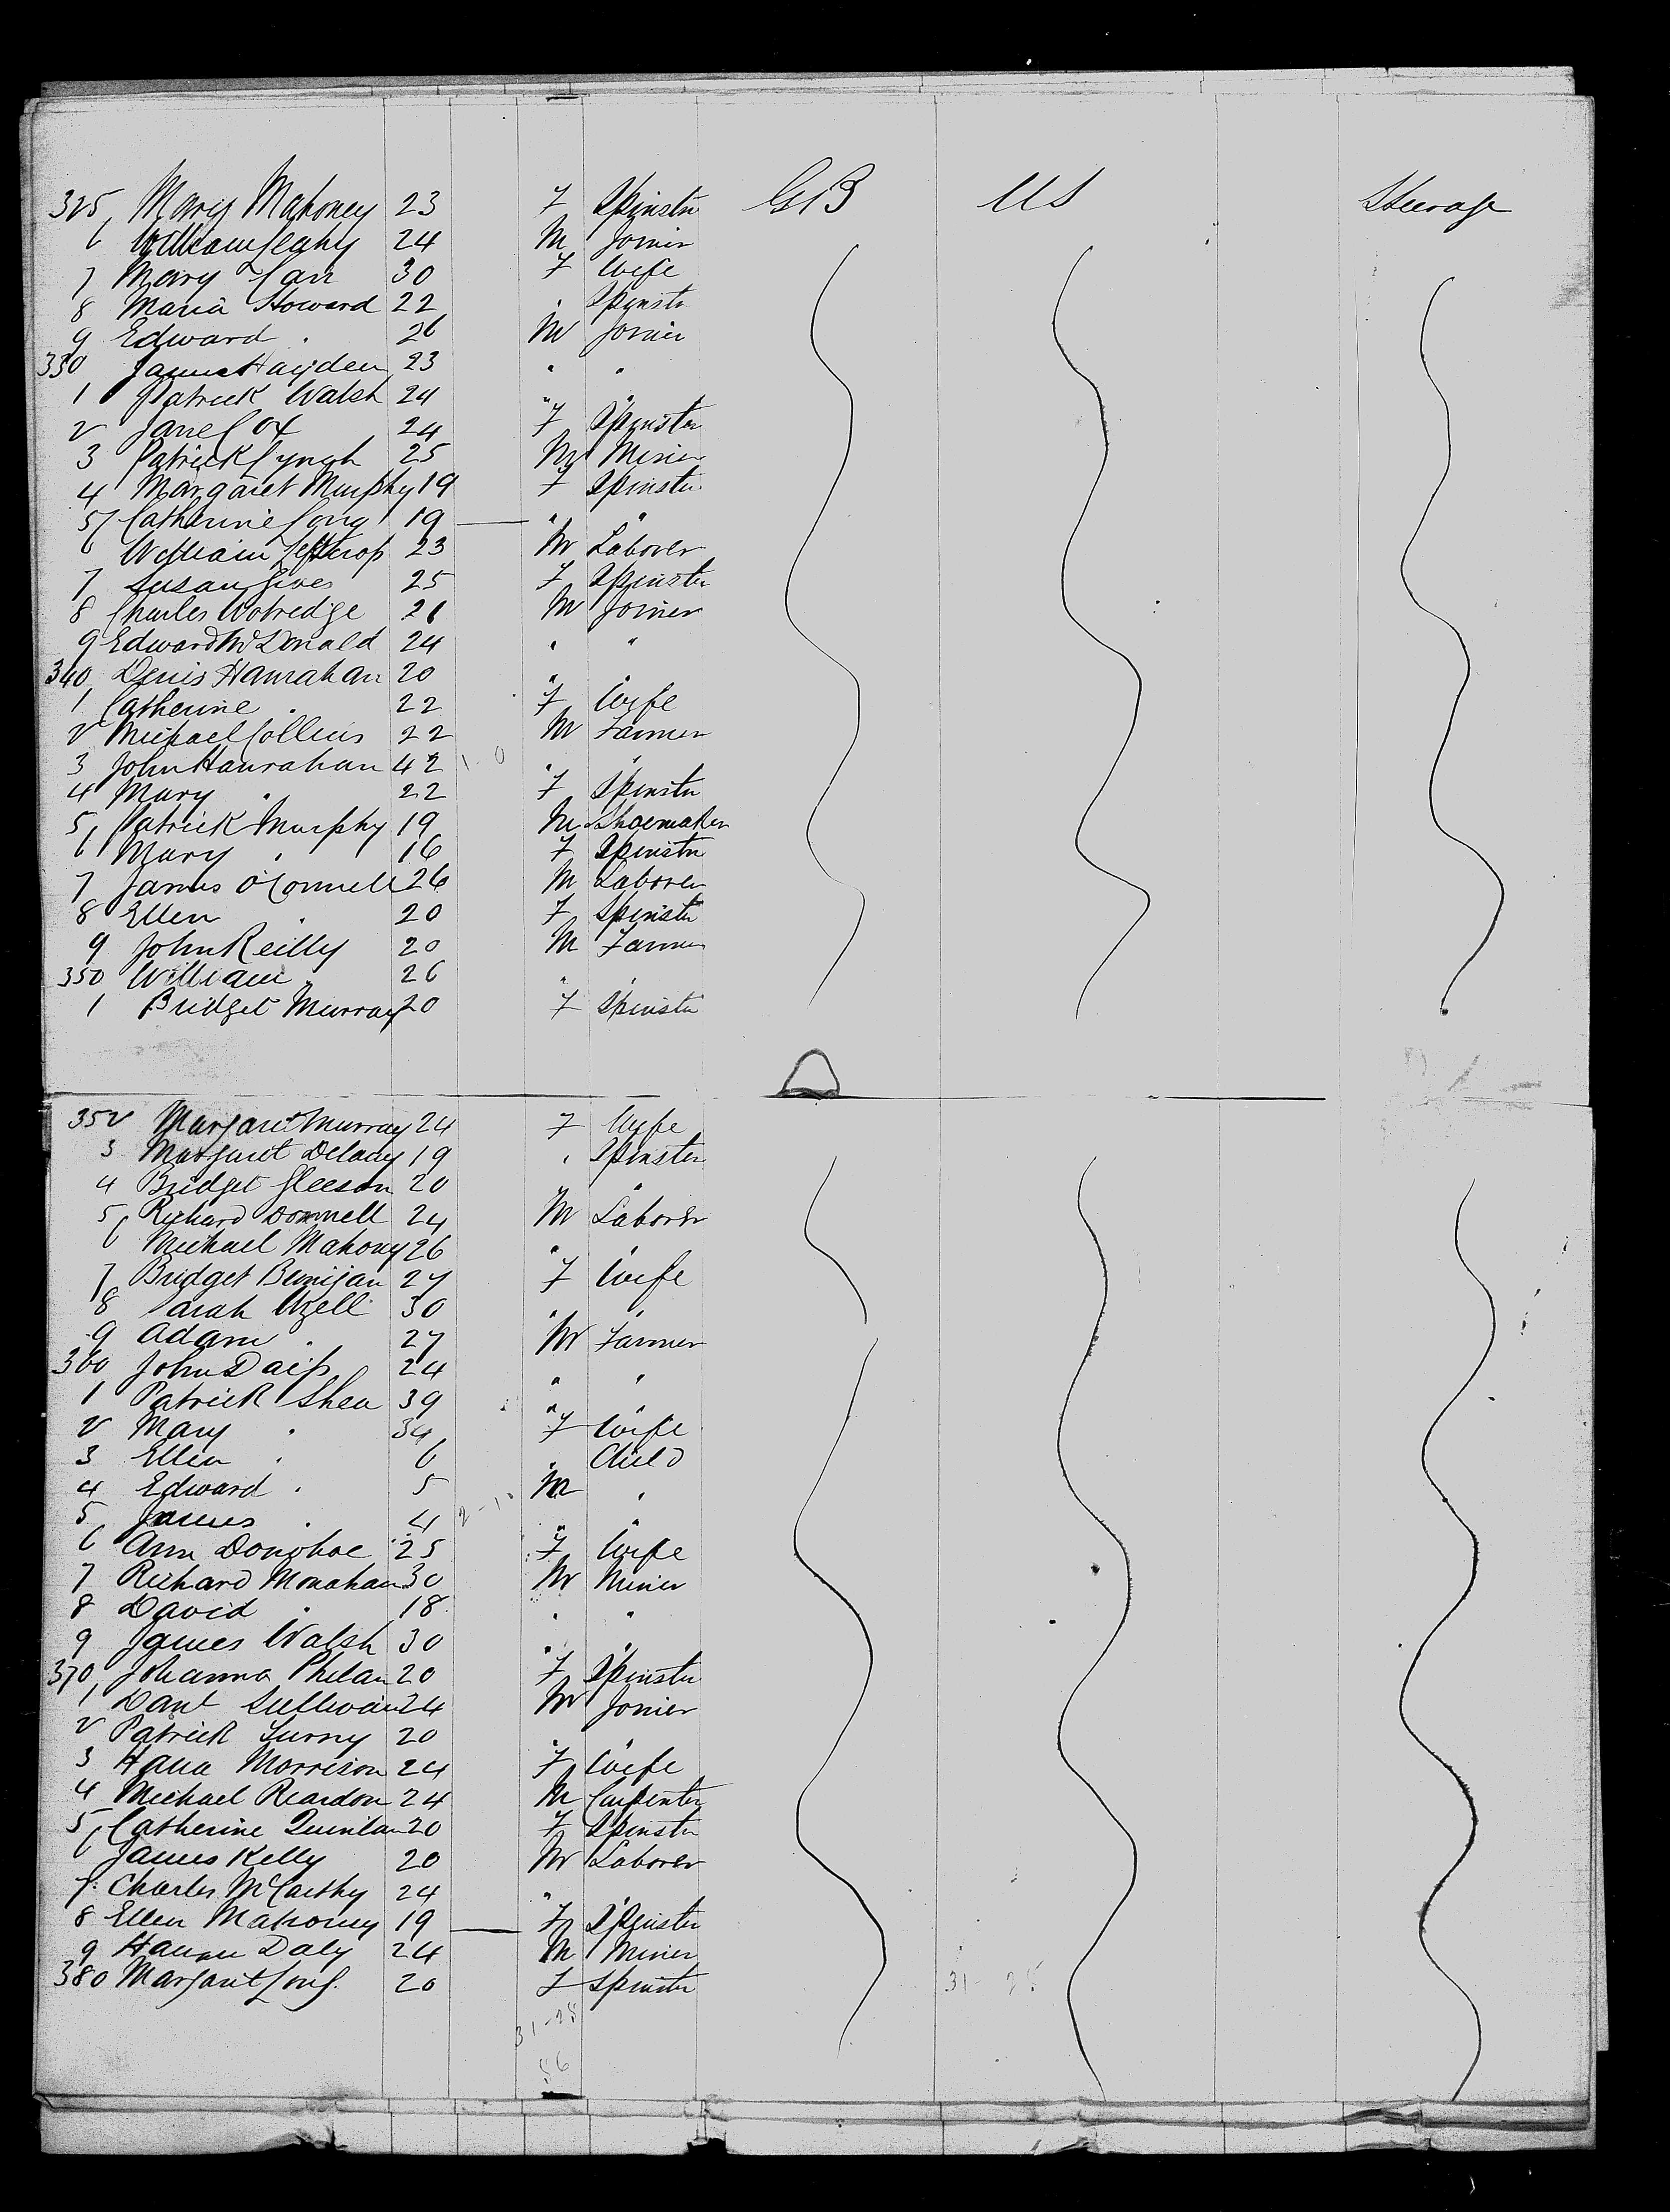 325 Mary Mahoney 23 F Spinster GB US Steerage
6 William Leahy 24 M Joiner
7 Mary Carr 30 F Wife
8 Maria Howard 22 " Spinstr
9 Edward " 26 M Joiner
330 James Hayden 23 " "
1 Patrick Walsh 24 " "
2 Jane Cox 24 F Spinster
3 Patrick Lynch 25 M Miner
4 Margaret Murphy 19 F Spinster
5 Catherine Long 19 " "
6 William 23 M Laborer
7 Susan 25 F Spinster
8 Charles Wotredge 21 M Joiner
9 Edward McDonald 24 " "
340 Denis Hanrahan 20 " "
1 Catherine " 22 F Wife
2 Michael Collins 22 M Farmer
3 John Hanrahan 42 " "
4 Mary " 22 F Spinstr
5 Patrick Murphy 19 M Shoemaker
6 Mary " 16 F Spinstr
7 James O'Connell 26 M Laborer
8 Ellen " 20 F Spinstr
9 John Reilly 20 M Farmer
350 William " 26 " "
1 Bridget Murray 20 F Spinstr
352 Margaret Murray 24 F Wife
3 Margaret Delany 19 " Spinster
4 Bridget Gleeson 20 " "
5 Richard Donnell 24 M Laborer
6 Michael Mahony 26 " "
7 Bridget Bunijan 27 F Wife
8 Sarah Uzell 30 " "
9 Adam " 27 M Farmer
360 John Daip 24 " "
1 Patrick Shea 39 " "
2 Mary " 34 F Wife
3 Ellen " 6 " Child
4 Edward " 5 M "
5 James " 4 " "
6 Ann Donohoe 25 F Wife
7 Richard Monahan 30 M Miner
8 David " 18 " "
9 James Walsh 30 " "
370 Johanna Phelan 20 F Spinster
1 Danl Sullivan 24 M Joiner
2 Patrick 20 " "
3 Hana Morrison 24 F Wife
4 Michael Reardon 24 M Carpenter
5 Catherine Quinlan 20 F Spinstr
6 James Kelly 20 M Laborer
7 Charles McCarthy 24 " "
8 Ellen Mahoney 19 F Spinster
9 Hanan Daly 24 M Miner
380 Margaret Long 20 F Spinster
31-25 31-25
56